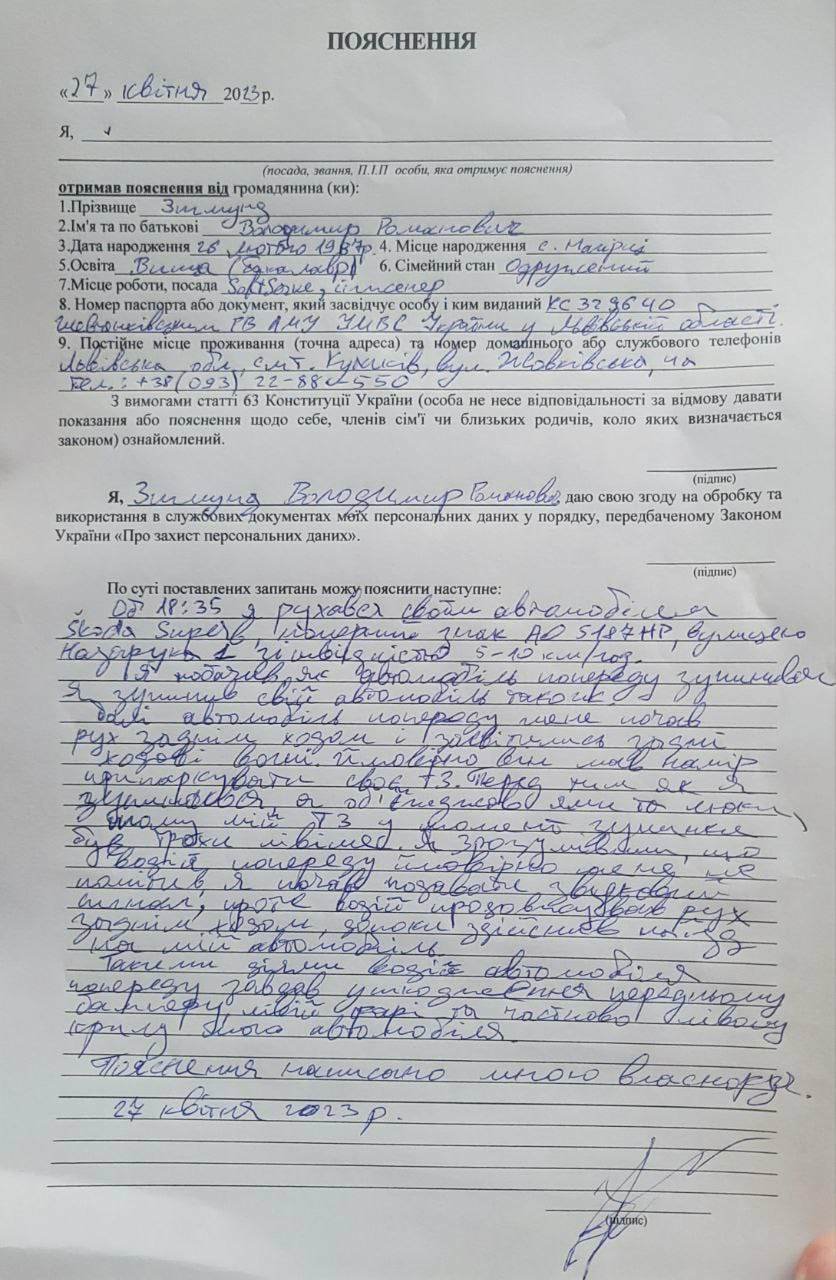 ПОЯСНЕННЯ
«27» квітня 2023 р.
Я,
(посада, звання, П.І.П особи, яка отримує пояснення)
отримав пояснення від громадянина (ки):
1.Прізвище Зигмунд
2.Ім'я та по батькові Володимир Романович
3.Дата народження 26 лютого 1987р. 4. Місце народження с.
5.Освіта Вища (бакалавр) 6. Сімейний стан Одружений
7.Місце роботи, посада SoftServe, інженер
8. Номер паспорта або документ, який засвідчує особу і ким виданий КС 329640
Шевченківським РВ ЛМУ УМВС України у Львівській області.
9. Постійне місце проживання (точна адреса) та номер домашнього або службового телефонів
Львівська обл., смт. Куликів, вул. Жовківська, 4а
тел.: +38(093) 22-88-550
З вимогами статті 63 Конституції України (особа не несе відповідальності за відмову давати
показання або пояснення щодо себе, членів сім'ї чи близьких родичів, коло яких визначається
законом) ознайомлений.
(підпис)
Я, Зигмунд Володимир Романович, даю свою згоду на обробку та
використання в службових документах моїх персональних даних у порядку, передбаченому Законом
України «Про захист персональних даних».
(підпис)
По суті поставлених запитань можу пояснити наступне:
Об 18:35 я рухався своїм автомобілем
Škoda Superb, номерний знак АО 5187 НР, вулицею
Назарука зі швидкістю 5-10 км/год.
Я побачив як автомобіль попереду зупинився
Я зупинив свій автомобіль також.
Далі автомобіль попереду мене почав
рух заднім ходом і засвітились задні
ходові вогні. Ймовірно він мав намір
припаркувати своє ТЗ. Перед тим як я
зупинився, я об'їжджав ями та люки,
тому мій ТЗ у момент зупинки
був трохи лівіше. Я зрозумівши, що
водій попереду ймовірно мене не
помітив я почав подавати звуковий
сигнал, проте водій продовжував рух
заднім ходом, допоки здійснив наїзд
на мій автомобіль.
Такими діями водій автомобіля
попереду завдав ушкодження передньому
бамперу, лівій фарі та частково лівому
крилу мого автомобіля.
Пояснення написано мною власноруч.
27 квітня 2023 р.
(підпис)